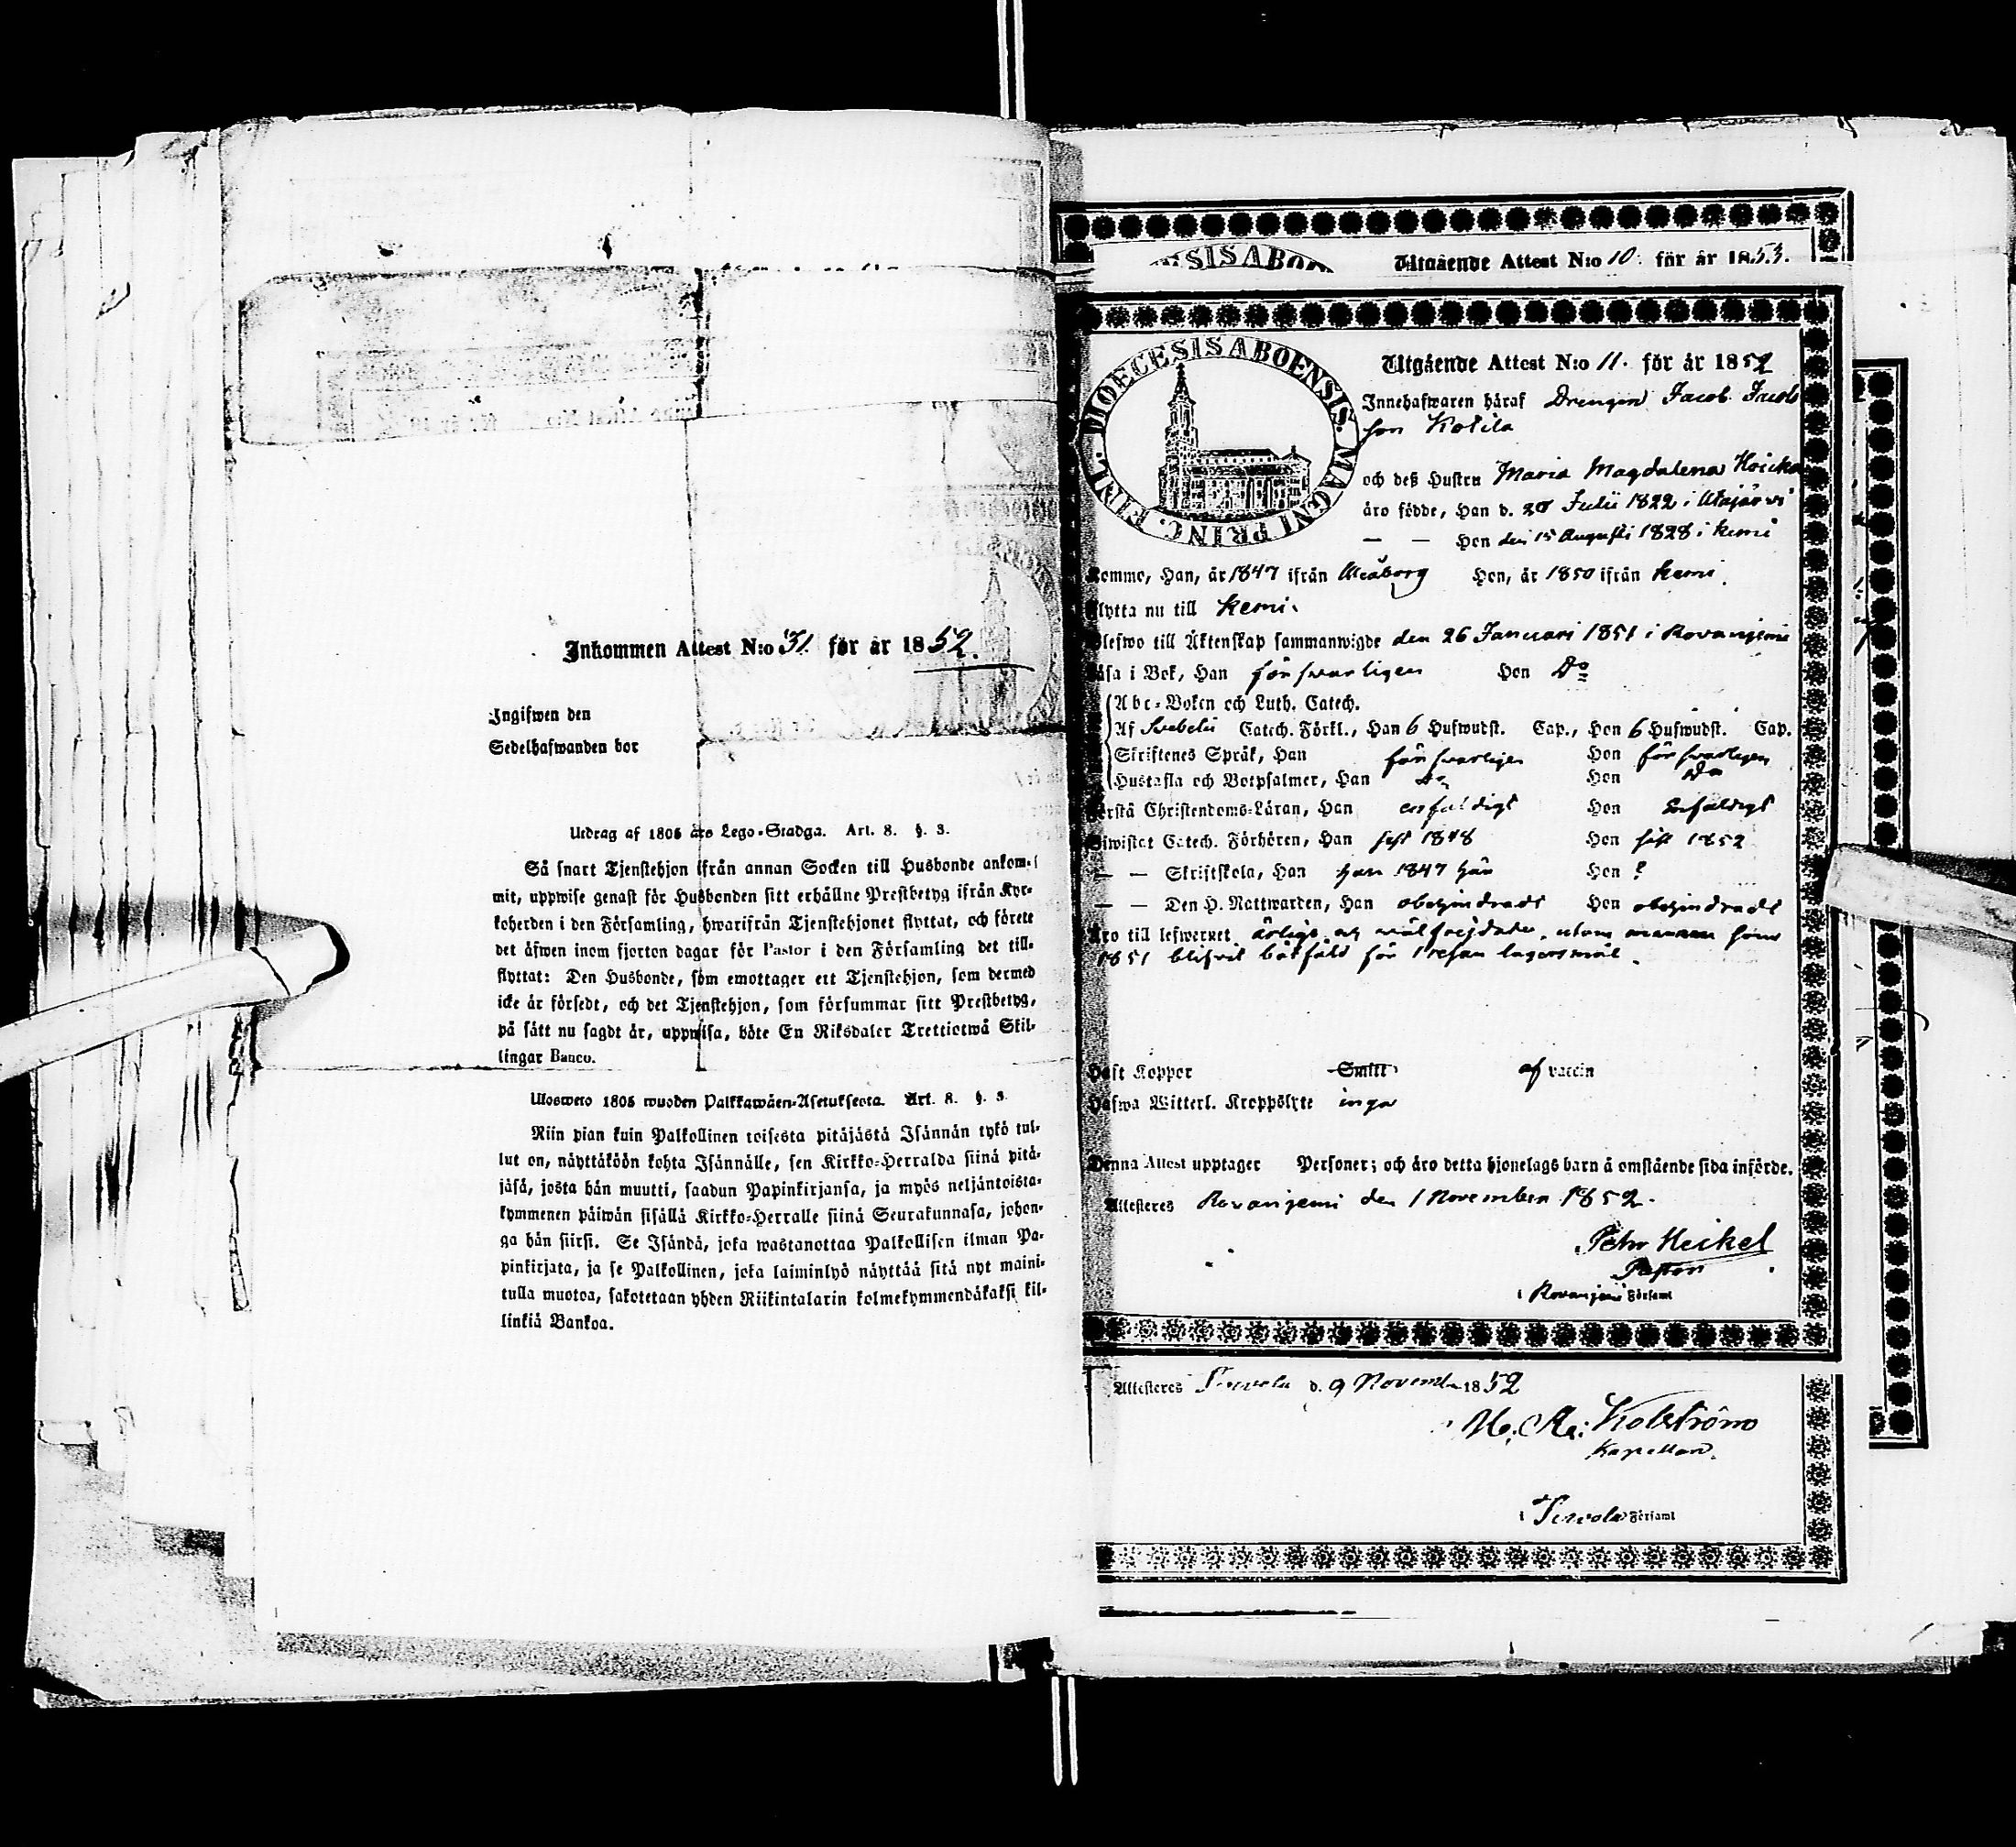 Inkommen Attest N:o 31 för år 1852.
Ingifwen den
Sedelhafwanden bor
Utdrag af 1805 års Lego-Stadga. Art. 8. §. 3.
Så snart Tjenstehjon ifrån annan Socken till Husbonde ankom-
mit, uppwise genast för Husbonden sitt erhållne Prestbetyg ifrån Kyr-
koherden i den Församling, hwarifrån Tjenstehjonet flyttat, och förete
det äfwen inom fjorton dagar för Pastor i den Församling det till-
flyttat: Den Husbonde, som emottager ett Tjenstehjon, som dermed
icke är försedt, och det Tjenstehjon, som försummar sitt Prestbetyg,
på sätt nu sagdt är, uppwisa, böte En Riksdaler Trettiotwå Skil-
lingar Banco.
Ulosweto 1805 wuoden Palkkawäen-Asetuksesta. Art. 8. §. 3.
Niin pian kuin Palkollinen toisesta pitäjästä Isännän tykö tul-
lut on, näyttäköön kohta Isännälle, sen Kirkko-Herralda siinä pitä-
jäsä, josta hän muutti, saadun Papinkirjansa, ja myös neljäntoista-
kymmenen päiwän sisällä Kirkko-Herralle siinä Seurakunnasa, johon-
ga hän siirsi. Se Isändä, joka wastanottaa Palkollisen ilman Pa-
pinkirjata, ja se Palkollinen, joka laiminlyö näyttää sitä nyt maini-
tulla muotoa, sakotetaan yhden Riikintalarin kolmekymmendäkaksi kil-
linkiä Bankoa.
SIS ABO
Utgående Attest N:o 10. för år 1853.
DIOECESIS ABOENSIS. MAGNI PRINC. FINL.
Utgående Attest N:o 11. för år 1852
Innehafwaren häraf Drengen Jacob Jacob
son Kotila
och deß Hustru Maria Magdalena
äro födde, Han d. 20 Julii 1822 i Utajärvi
— — Hon den 15 Augusti 1828 i Kemi
Komme, Han, år 1847 ifrån Uleåborg Hon, år 1850 ifrån Kemi.
flytta nu till Kemi.
Blefwo till Äktenskap sammanwigde den 26 Januari 1851 i Rovaniemi
läsa i Bok, Han försvarligen Hon Do
Abc-Boken och Luth. Catech.
Af Svebelii Catech. Förkl., Han 6 Hufwudst. Cap., Hon 6 Hufwudst. Cap.
Skriftenes Språk, Han försvarligen Hon försvarligen
Hustafla och Botpsalmer, Han Do Hon Do
förstå Christendoms-Läran, Han enfaldigt Hon Enfaldigt
Biwistat Catech. Förhören, Han sist 1848 Hon sist 1852
— — Skriftskola, Han 1847 här Hon ?
— — Den H. Nattwarden, Han obehindradt Hon obehindradt
Äro till lefwernet ärlige och välfrejdade, utom mannen som
1851 blifvit bötfäld för lagersmål.
Haft Koppor Smitt af vaccin
Hafwa Witterl. Kroppslyte inga
Denna Attest upptager Personer; och äro detta hjonelags barn å omstående sida införde.
Attesteres Rovaniemi den 1 November 1852.
Petr Heikel
Pastor
i Rovaniemi Församl
Attesteres Tervola d. 9 Novemb. 1852
Kolström
Kapellan.
i Tervola Församl